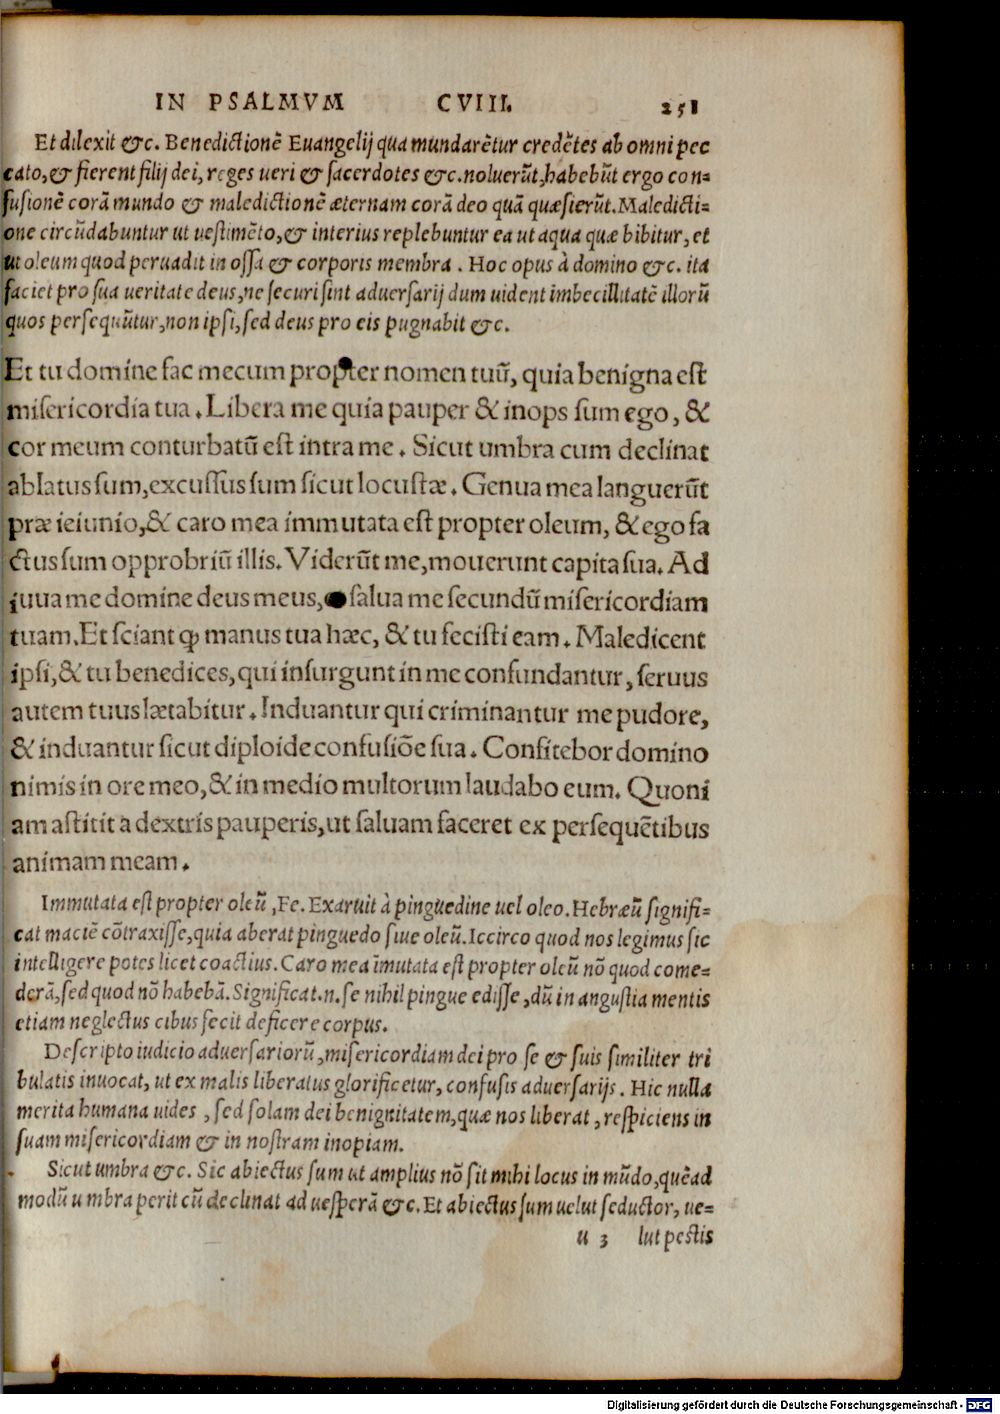 IN PSALMVM CVIII. 251
Et dilexit &c. Benedictionē Euangelij qua mundarētur credētes ab omni pec
cato, & fierent filij dei, reges ueri & sacerdotes &c. noluerūt, habebūt ergo con=
fusionē corā mundo & maledictionē æternam corā deo quā quæsierūt. Maledicti=
one circūdabuntur ut uestimēto, & interius replebuntur ea ut aqua quæ bibitur, et
ut oleum quod peruadit in ossa & corporis membra . Hoc opus à domino &c. ita
faciet pro sua ueritate deus, ne securi sint aduersarij dum uident imbecillitatē illorū
quos persequūtur, non ipsi, sed deus pro eis pugnabit &c.
Et tu domine fac mecum propter nomen tuū, quia benigna est
misericordia tua . Libera me quia pauper & inops sum ego, &
cor meum conturbatū est intra me . Sicut umbra cum declinat
ablatus sum, excussus sum sicut locustæ . Genua mea languerūt
præ ieiunio, & caro mea immutata est propter oleum, & ego fa
ctus sum opprobriū illis. Viderūt me, mouerunt capita sua. Ad
iuua me domine deus meus, salua me secundū misericordiam
tuam. Et sciant ꝙ manus tua hæc, & tu fecisti eam . Maledicent
ipsi, & tu benedices, qui insurgunt in me confundantur, seruus
autem tuus lætabitur . Induantur qui criminantur me pudore,
& induantur sicut diploide confusiōe sua . Confitebor domino
nimis in ore meo, & in medio multorum laudabo eum. Quoni
am astitit a dextris pauperis, ut saluam faceret ex persequētibus
animam meam .
Immutata est propter oleū, Fe. Exaruit à pinguedine uel oleo. Hebræū signifi=
cat maciē cōtraxisse, quia aberat pinguedo siue oleū. Iccirco quod nos legimus sic
intelligere potes licet coactius. Caro mea īmutata est propter oleū nō quod come=
derā, sed quod nō habebā. Significat .n. se nihil pingue edisse, dū in angustia mentis
etiam neglectus cibus fecit deficere corpus.
Descripto iudicio aduersariorū, misericordiam dei pro se & suis similiter tri
bulatis inuocat, ut ex malis liberatus glorificetur, confusis aduersarijs . Hic nulla
merita humana uides , sed solam dei benignitatem, quæ nos liberat , respiciens in
suam misericordiam & in nostram inopiam.
Sicut umbra &c. Sic abiectus sum ut amplius nō sit mihi locus in mūdo, quēad
modū umbra perit cū declinat ad uesperā &c. Et abiectus sum uelut seductor, ue=
u 3 lut pestis
Digitalisierung gefördert durch die Deutsche Forschungsgemeinschaft - DFG